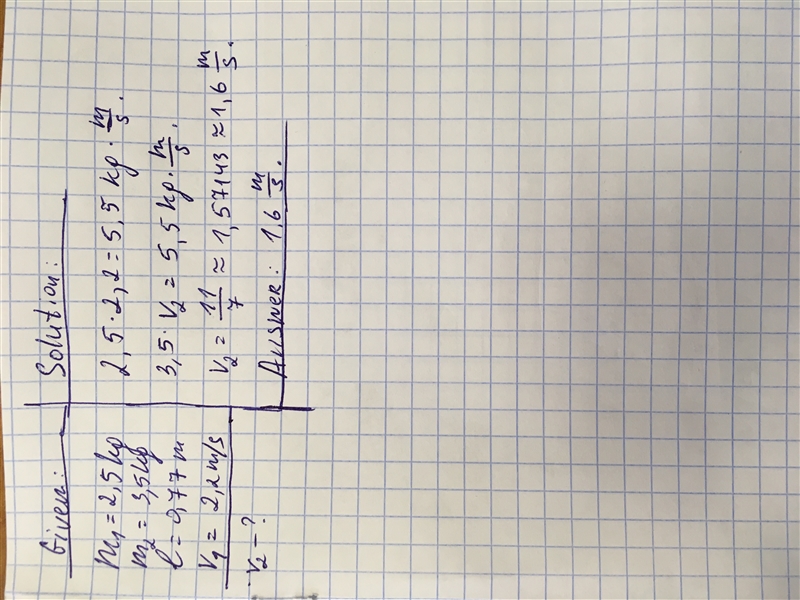 Given:
m₁ = 2,5 kg
m₂ = 3,5 kg
l = 0,77 m
V₁ = 2,2 m/s
V₂ - ?
Solution:
2,5 · 2,2 = 5,5 kg · m/s.
3,5 · V₂ = 5,5 kg · m/s.
V₂ = 11/7 ≈ 1,57143 ≈ 1,6 m/s.
Answer: 1,6 m/s.